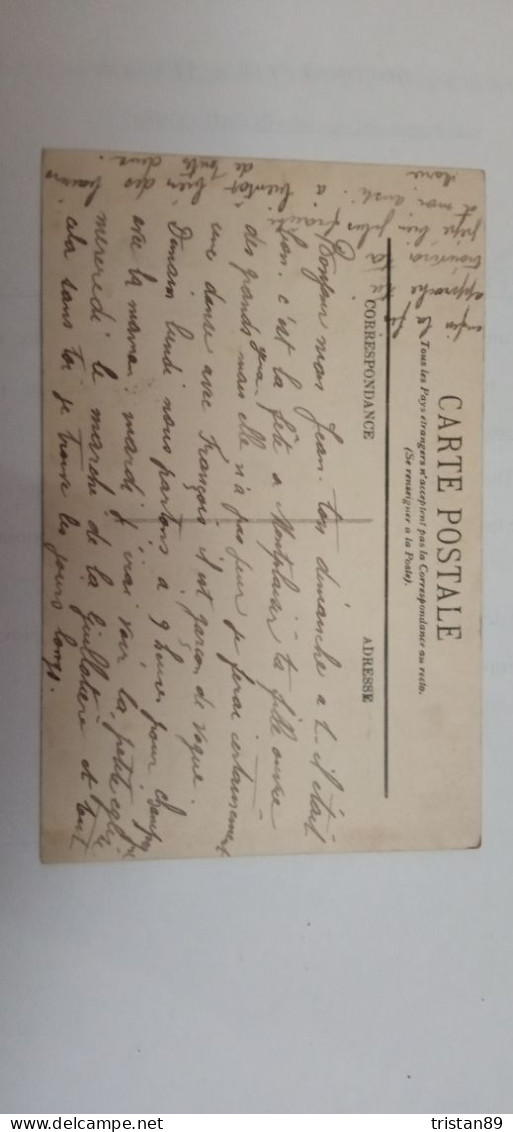 CARTE POSTALE
Tous les Pays étrangers n'acceptent pas la Correspondance au recto.
(Se renseigner à la Poste).
CORRESPONDANCE
ADRESSE
Bonjour mon Jean. ton dimanche a t-il était
bon. c'est la fête a Montplaisir ta fille ouvre
des grands yeux mais elle n'a pas peur je ferai certainement
une danse avec François il est garçon de vogue.
Demain lundi nous partons a 9 heures pour
avec la maman. mardi j'irai voir la petite
mercredi le marche de la Guillotière et tout
cela sans toi je trouve les jours longs.
enfin
approche
trouvera
bien plus
et moi aussi. a bientôt bien des
de toute deux.
tristan89
delcampe.net